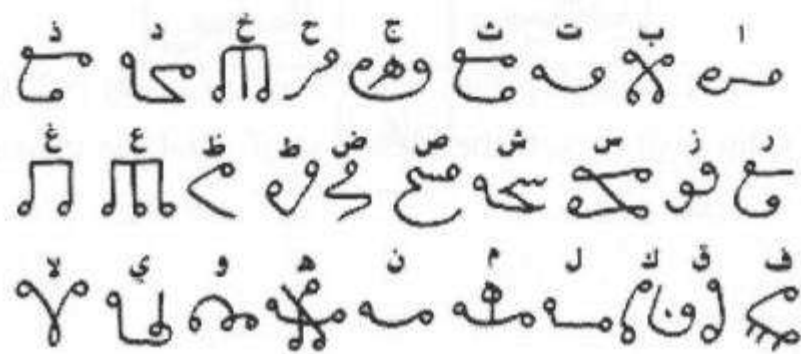 ا ب ت ث ج ح خ د ذ
ر ز س ش ص ض ط ظ ع غ
ف ق ك ل م ن ه و ي لا